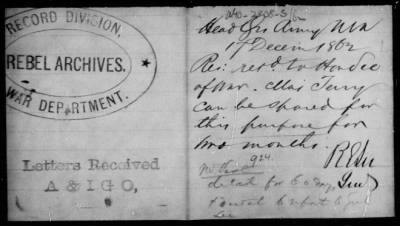 RECORD DIVISION,
REBEL ARCHIVES.
WAR DEPARTMENT.
Letters Received
A & I G O,
Head Qrs Army NVa
17 Decem 1862
Res: retd to Hon Sec
of War. Maj Terry
can be spared for
this purpose for
two months.
RELee
Genl
924
detail for 60 days